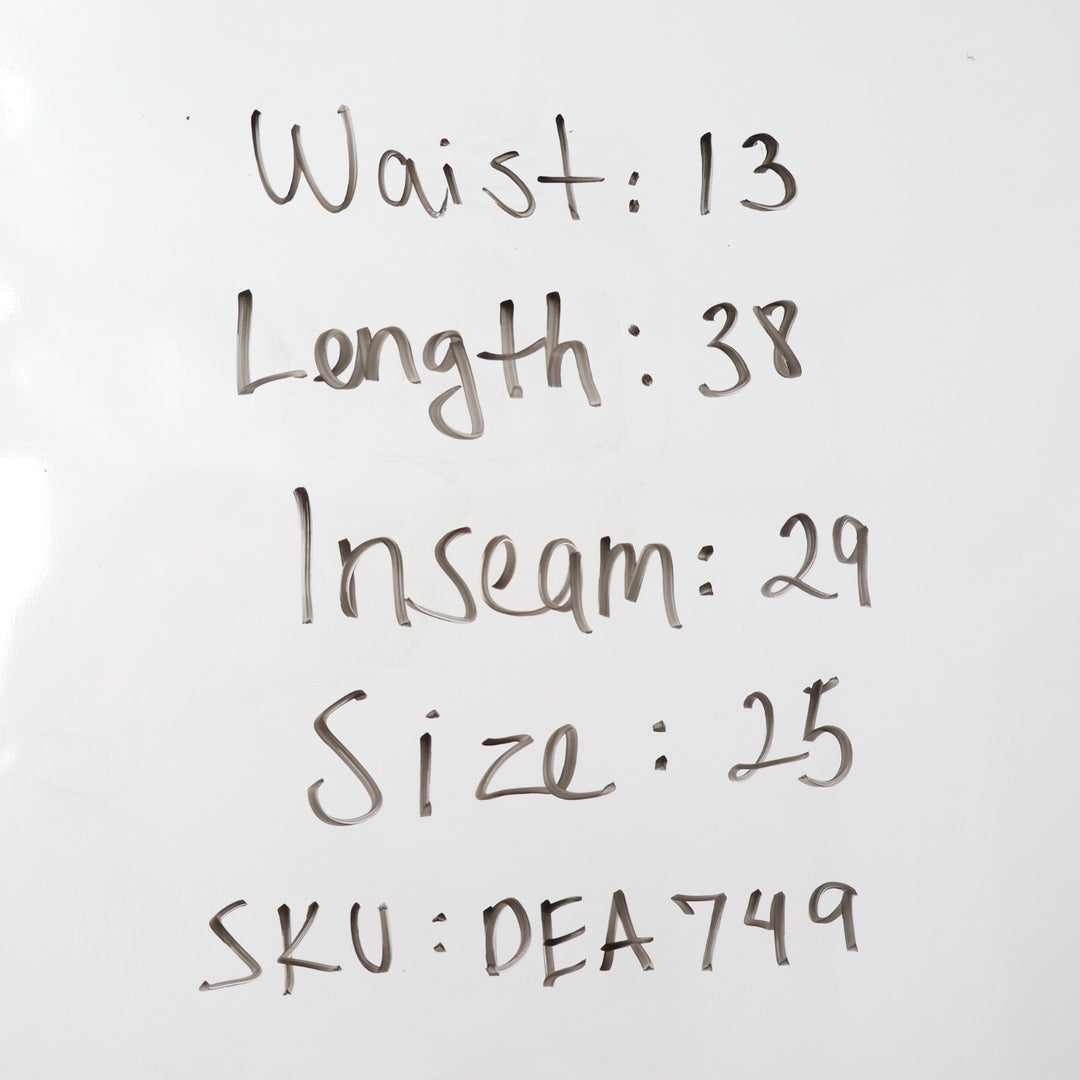 Waist: 13
Length: 38
Inseam: 29
Size: 25
SKU: DEA749